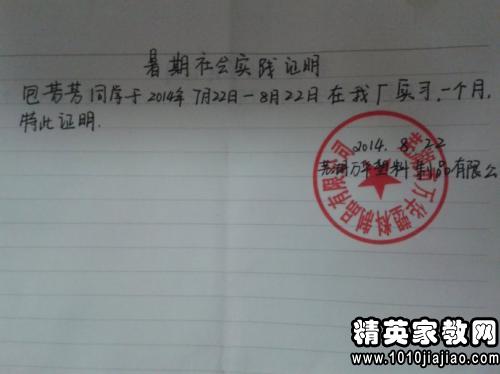 暑期社会实践证明
芭芳芳同学于2014年7月22日—8月22日在我厂实习一个月,
特此证明.
2014.8.22
芜湖万华塑料制品有限公
芜湖万华塑料制品有限公司
精英家教网
www.1010jiajiao.com